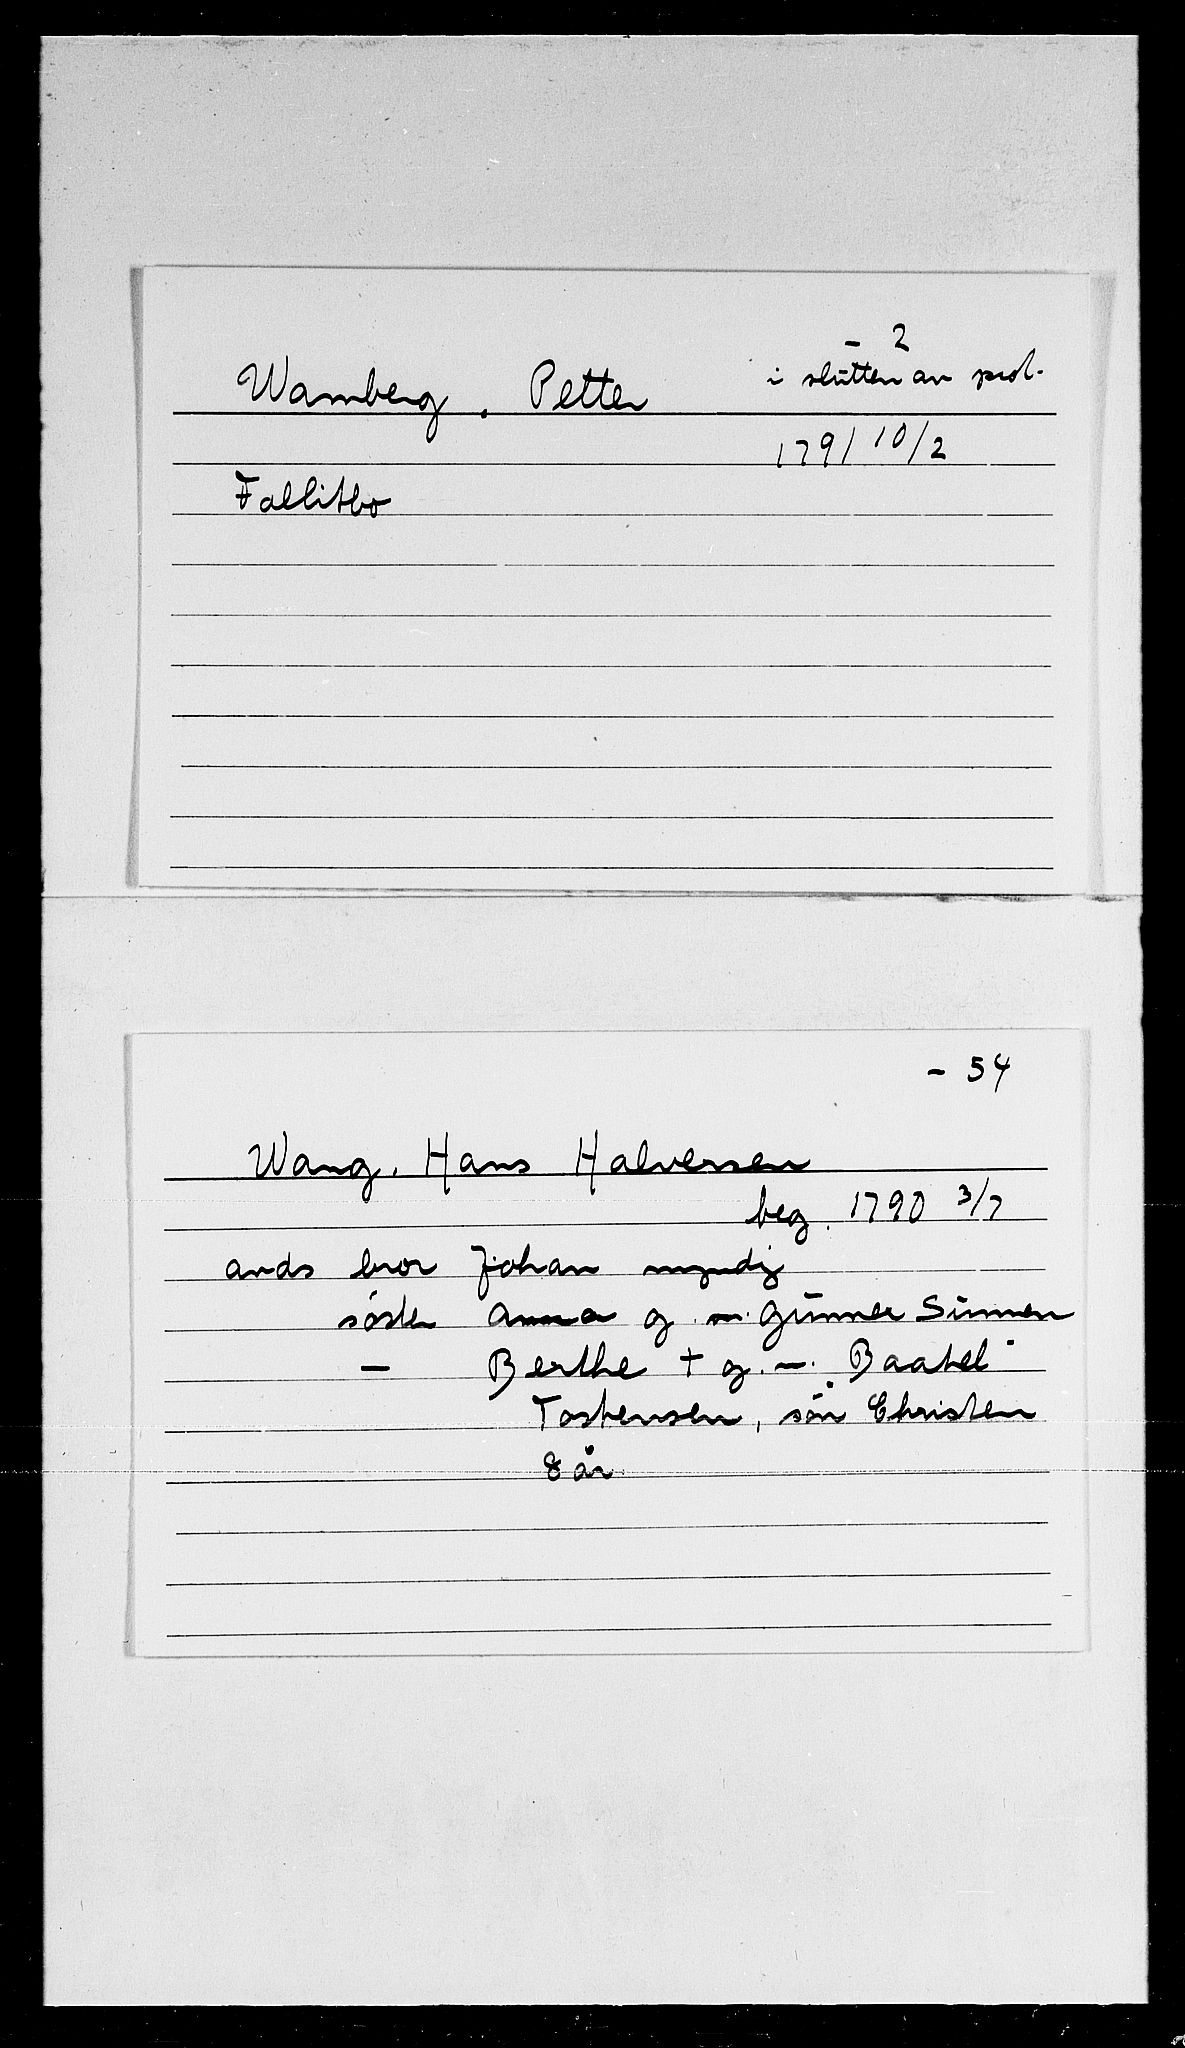 - 2
Wamberg, Petter i slutten av prot.
1791 10/2
Fallitbo
- 54
Wang, Hans Halversen
beg. 1790 3/7
ands bror Johan myndig
søster Anna g. m. Gunner Simmen
- Berthe + g. m. Baatel
Tostensen, søn Christen
8 år.